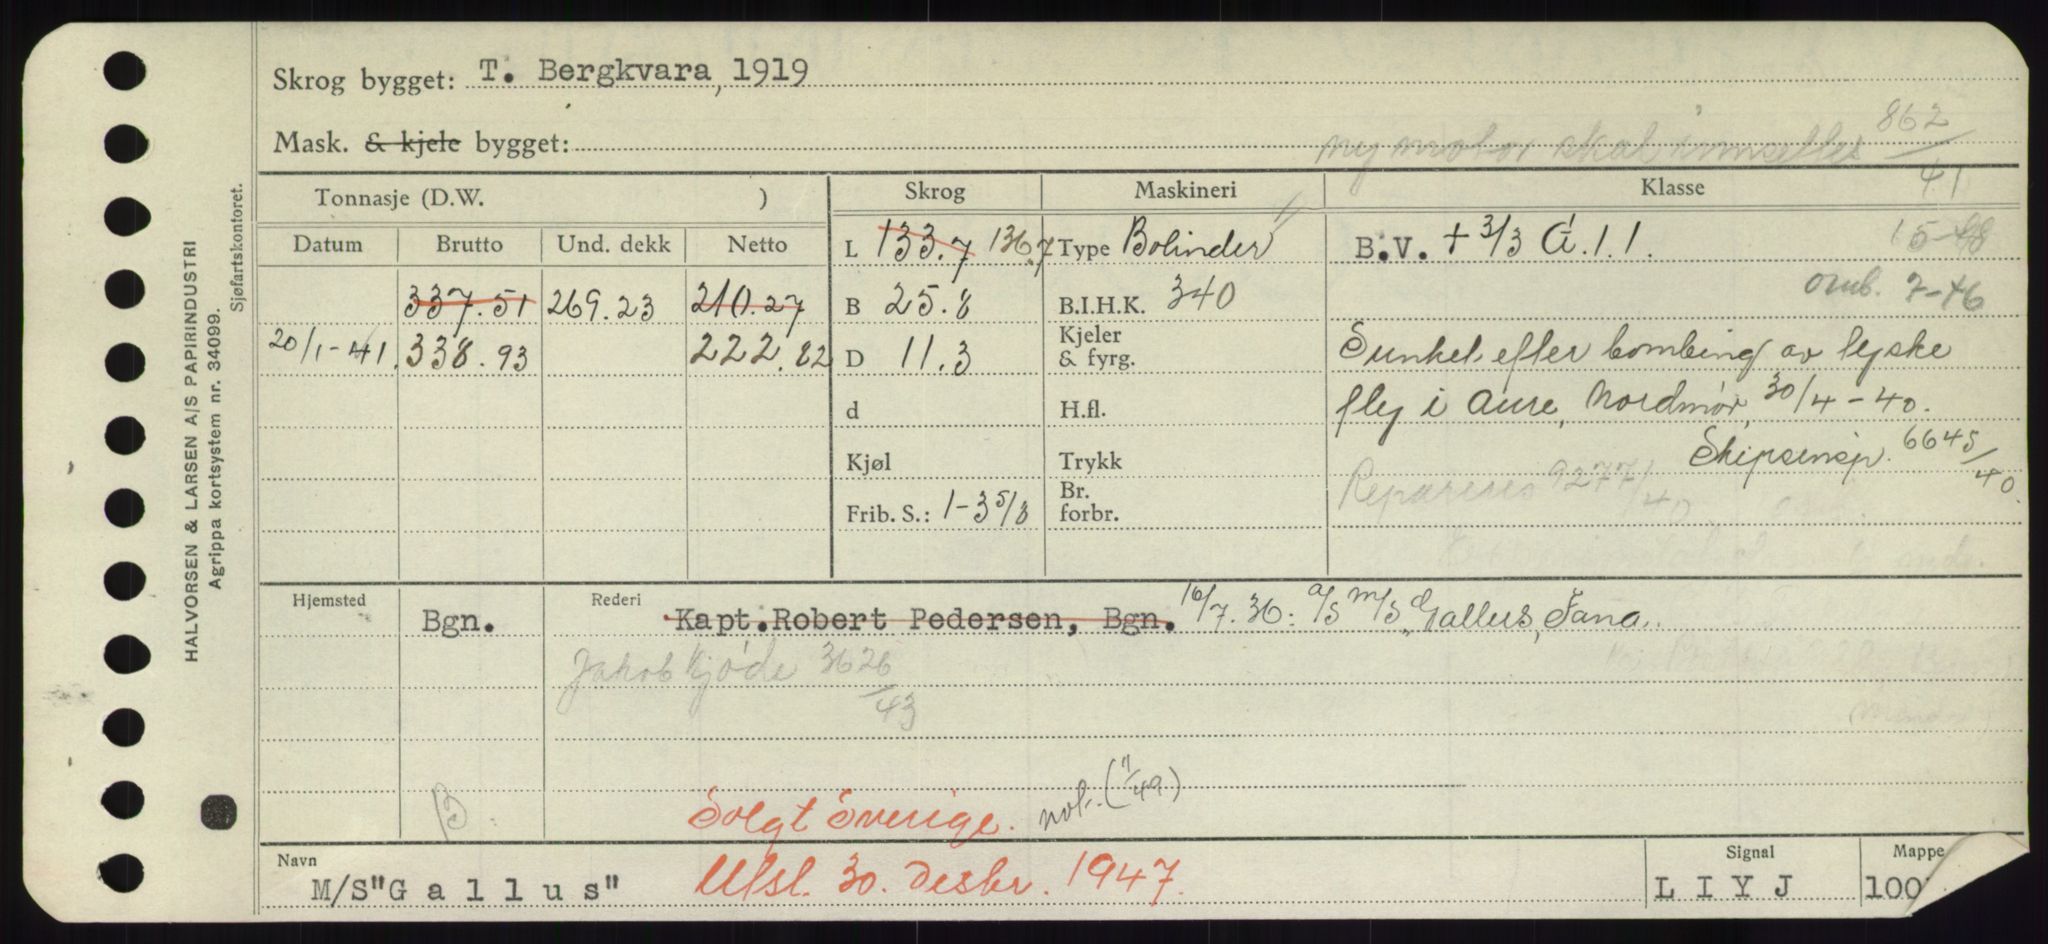 Skrog bygget: T. Bergkvara, 1919
862/41
Mask. & kjele bygget: ny motor skal innsettes
Tonnasje (D.W. ) Skrog Maskineri Klasse
Datum Brutto Und. dekk Netto L 133.7 136.7 Type Bolinder B.V. + 3/3 A. 1. 1. 15-48
337.51 269.23 210.27 B 25.8 B.I.H.K. 340 omb. 7-46
20/1-41. 338.93 222.82 D 11.3 Kjeler & fyrg. Sunket efter bombing av tyske
d H.fl. fly i Aure, Nordmør, 30/4-40.
Kjøl Trykk Skipsinsp. 6645/40.
Frib. S.: 1-3 5/8 Br. forbr. Repareres 9277/40
Hjemsted Bgn. Rederi Kapt. Robert Pedersen, Bgn. 16/7.36: A/S M/S Gallus, Fana.
Jakob Kjøde 3626/43
B. Solgt Sverige. not. (1/49)
Navn M/S"Gallus" Utsl. 30. desbr. 1947. Signal LIYJ Mappe 100
HALVORSEN & LARSEN A/S PAPIRINDUSTRI
Agrippa kortsystem nr. 34099.
Sjøfartskontoret.